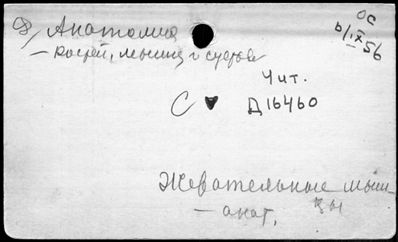 Анатомия
ОС
— костей, мышц и суставов
6/IX 56
Чит.
С ♥ Д16460
Жевательные мыш-
цы
— анат.